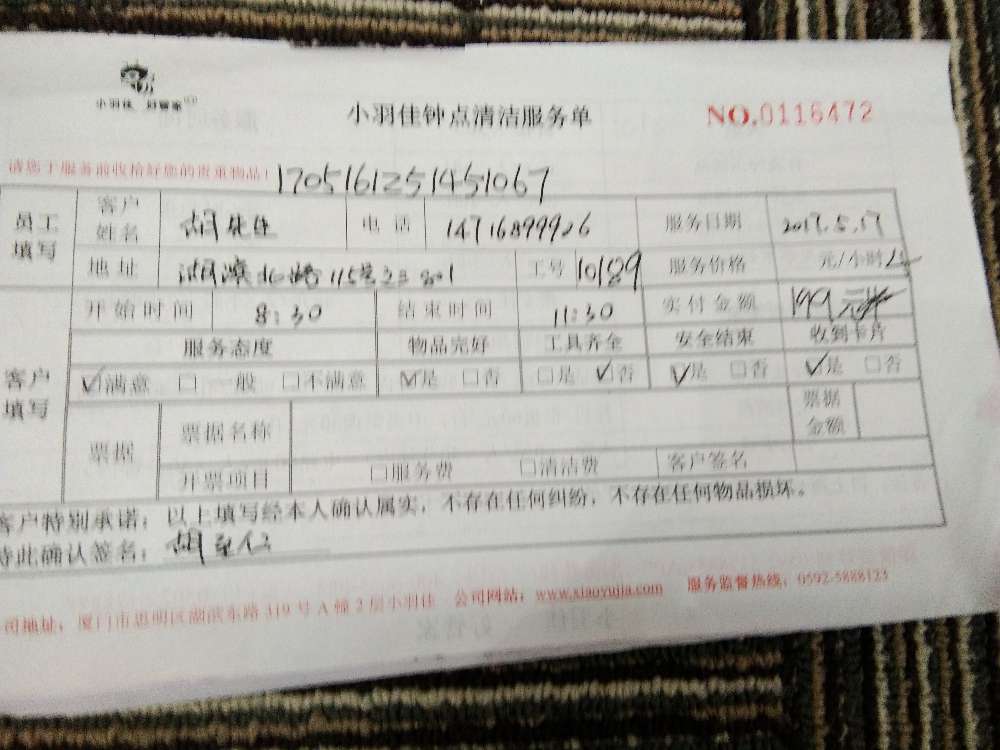 小羽佳 好管家
小羽佳钟点清洁服务单
NO.0116472
请您于服务前收拾好您的贵重物品！
1705161251451067
员工填写
客户姓名 胡先生 电话 14716899926 服务日期 2017.5.17
地址 湖滨北路115号23 801 工号 10189 服务价格 元/小时
开始时间 8:30 结束时间 11:30 实付金额 149元
客户填写
服务态度 物品完好 工具齐全 安全结束 收到卡片
☑满意 □一般 □不满意 ☑是 □否 □是 ☑否 ☑是 □否 ☑是 □否
票据 票据名称 票据金额
开票项目 □服务费 □清洁费 客户签名
客户特别承诺：以上填写经本人确认属实，不存在任何纠纷，不存在任何物品损坏。
特此确认签名：胡
公司地址：厦门市思明区湖滨东路319号A幢2层小羽佳 公司网站：www.xiaoyujia.com 服务监督热线：0592-5888123